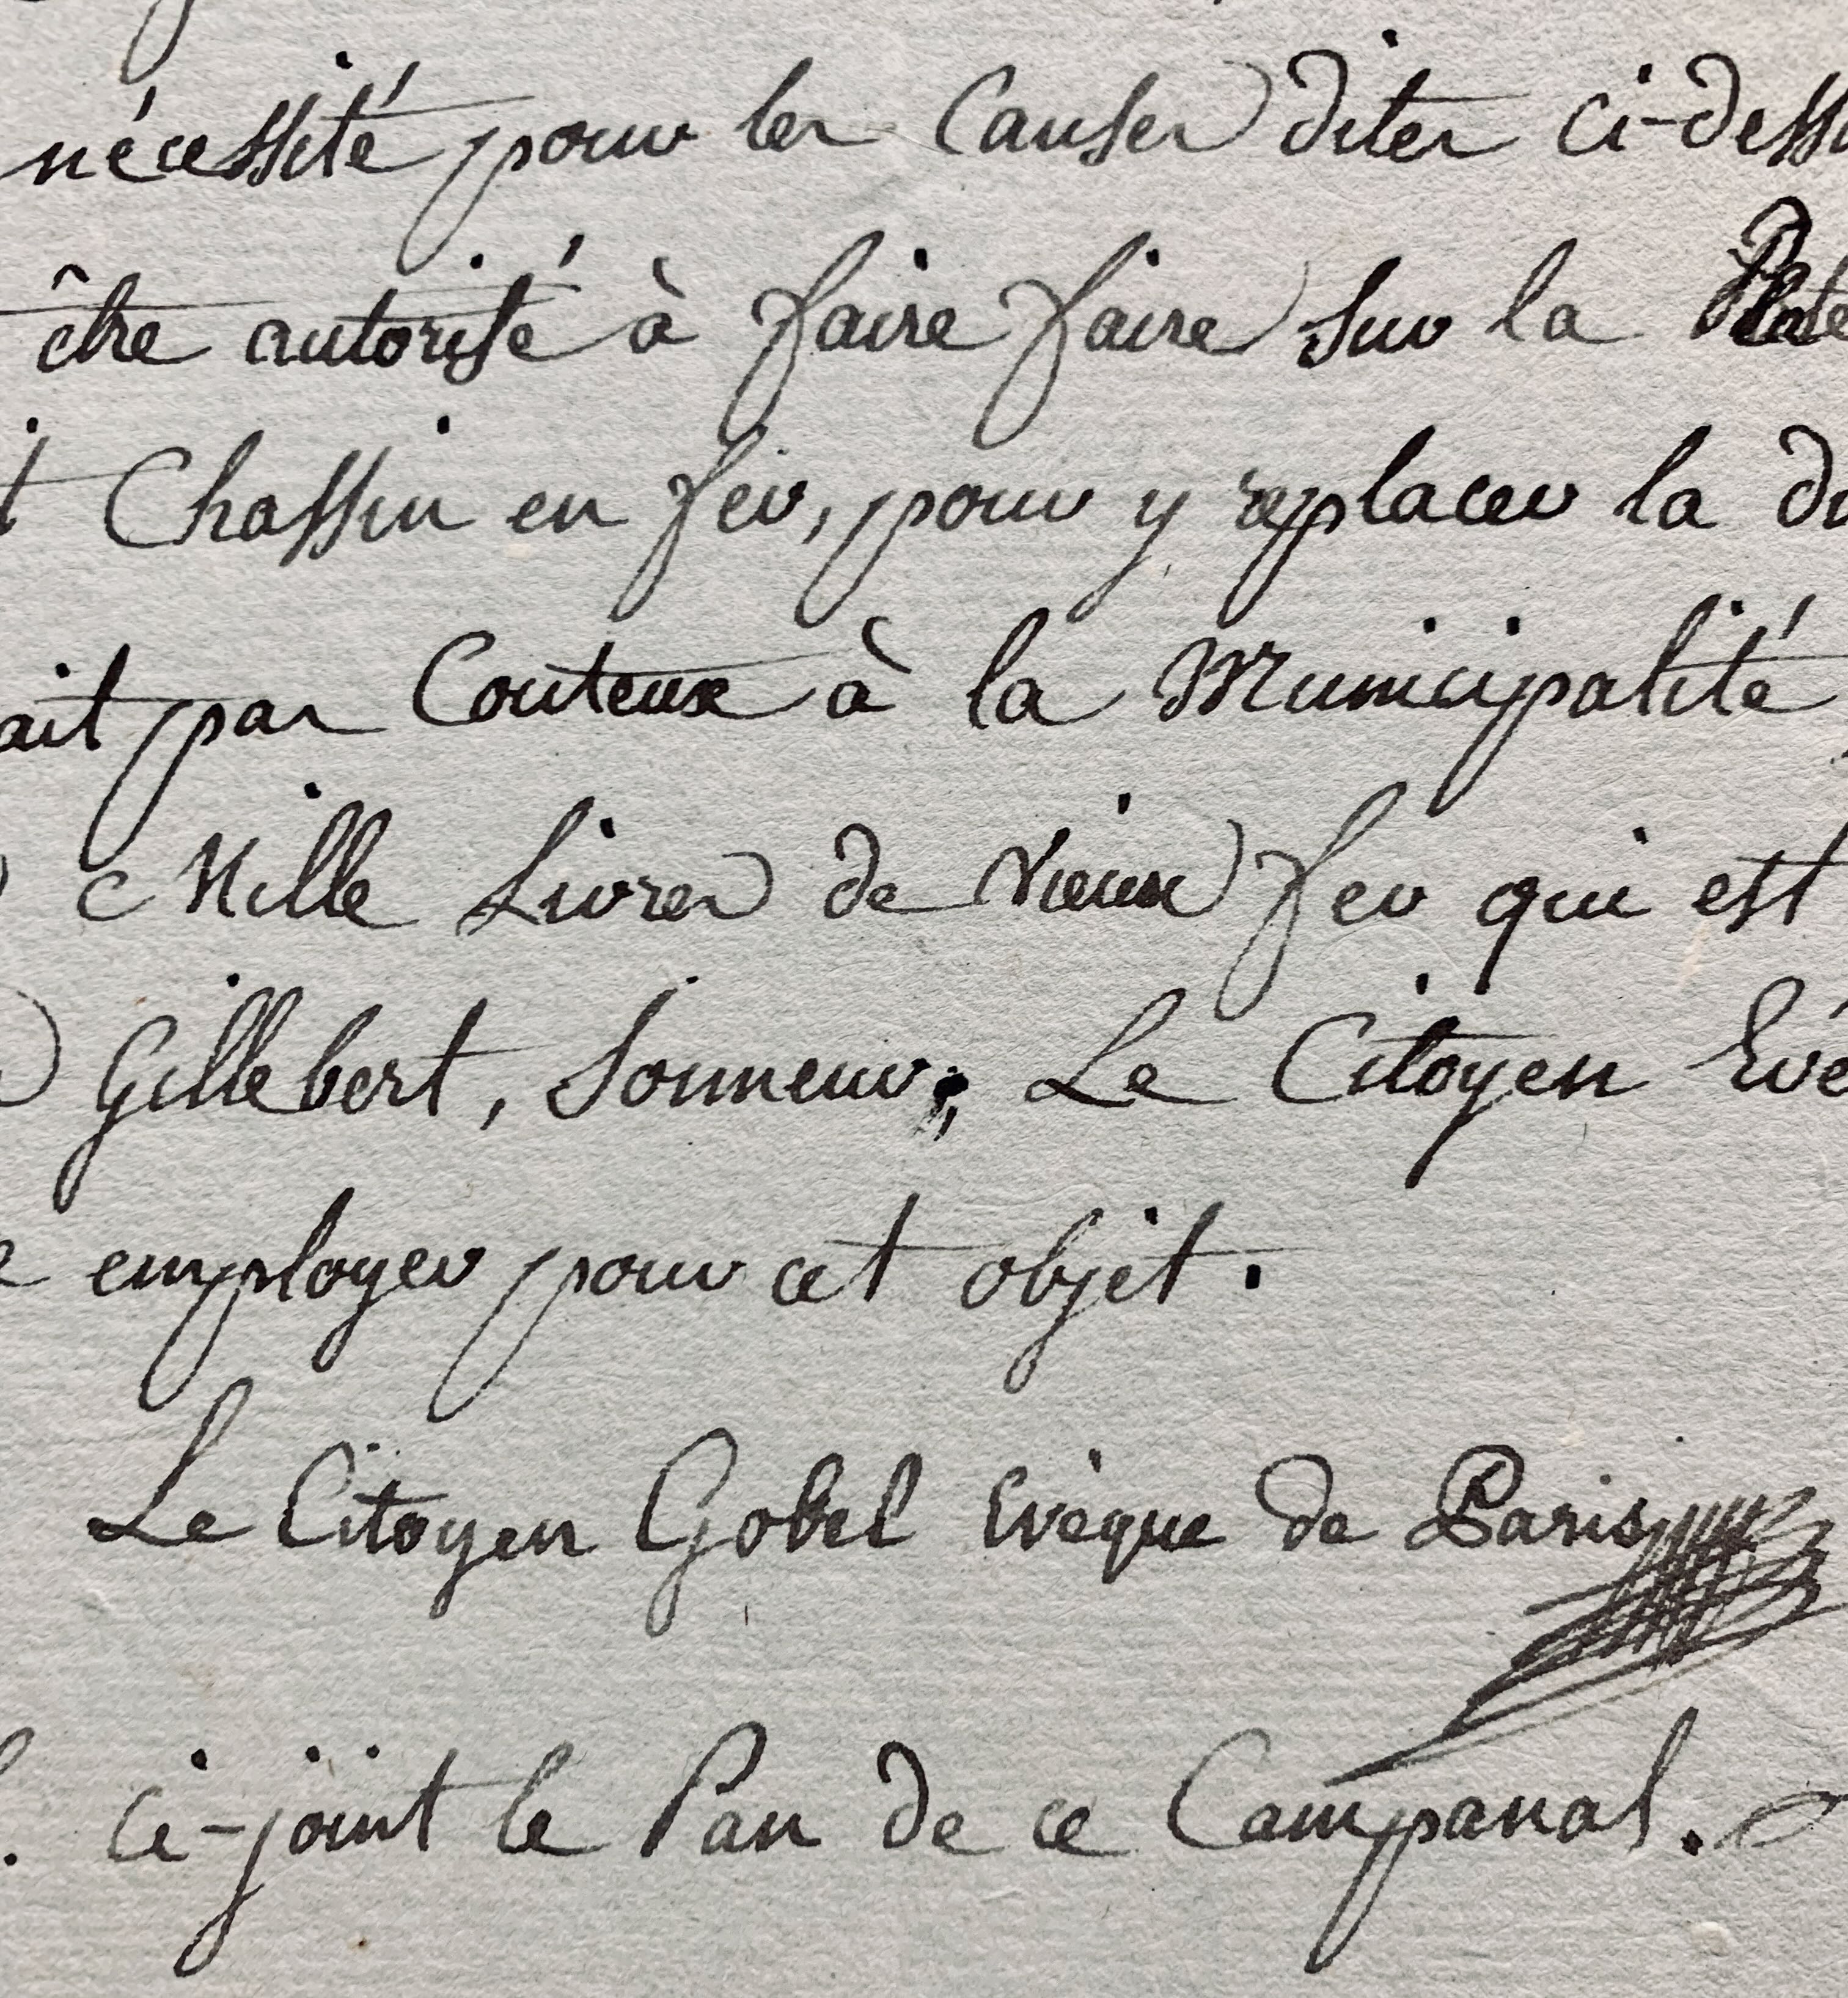 nécessité pour les Causes dites ci-dessu
être autorisé à faire faire sur la Plate
t Chassin en fer, pour y replacer la di
ait pas Couteux à la Municipalité
Mille Livres de vieux fer qui est
Gillebert, Sonneur; Le Citoyen Evê
employer pour cet objèt.
Le Citoyen Gobel Evèque de Paris
Ci-joint le Pan de ce Campanal.